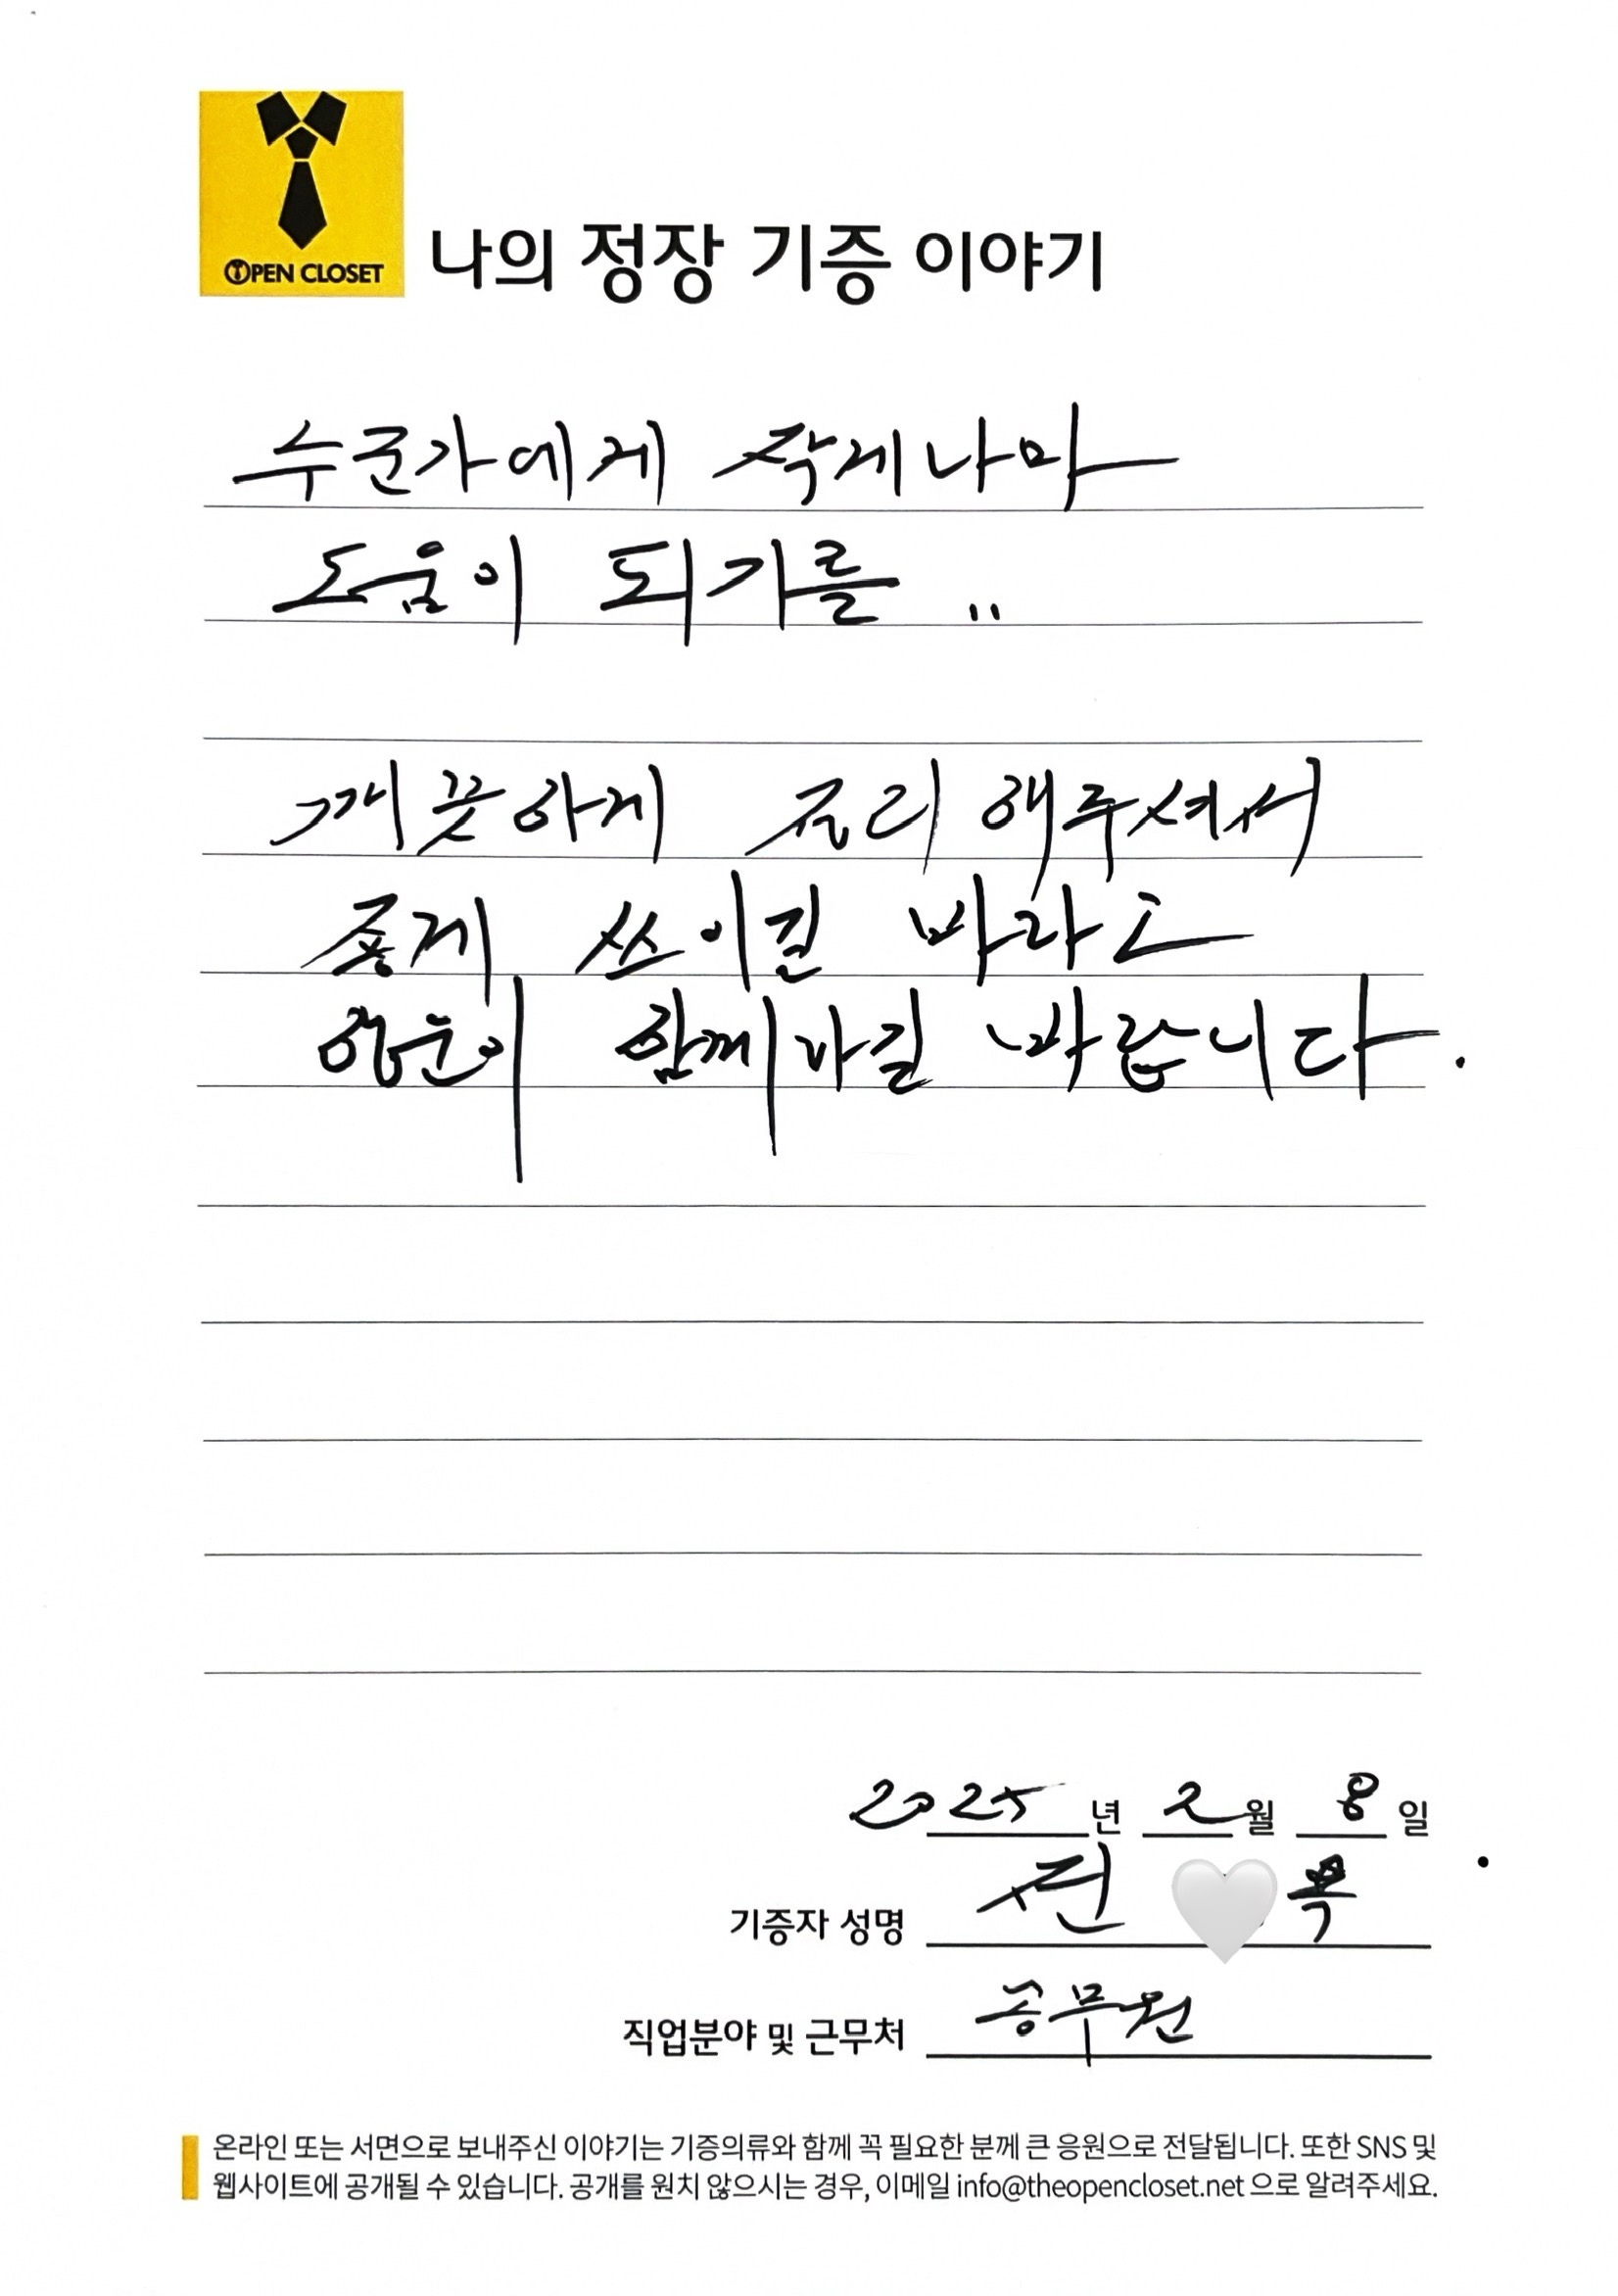 OPEN CLOSET
나의 정장 기증 이야기
누군가에게 작게나마
도움이 되기를 ..
깨끗하게 관리 해주셔서
좋게 쓰이길 바라고
행운이 함께하길 바랍니다.
2025년 2월 8일
기증자 성명 전 욱
직업분야 및 근무처 공무원
온라인 또는 서면으로 보내주신 이야기는 기증의류와 함께 꼭 필요한 분께 큰 응원으로 전달됩니다. 또한 SNS 및
웹사이트에 공개될 수 있습니다. 공개를 원치 않으시는 경우, 이메일 info@theopencloset.net 으로 알려주세요.